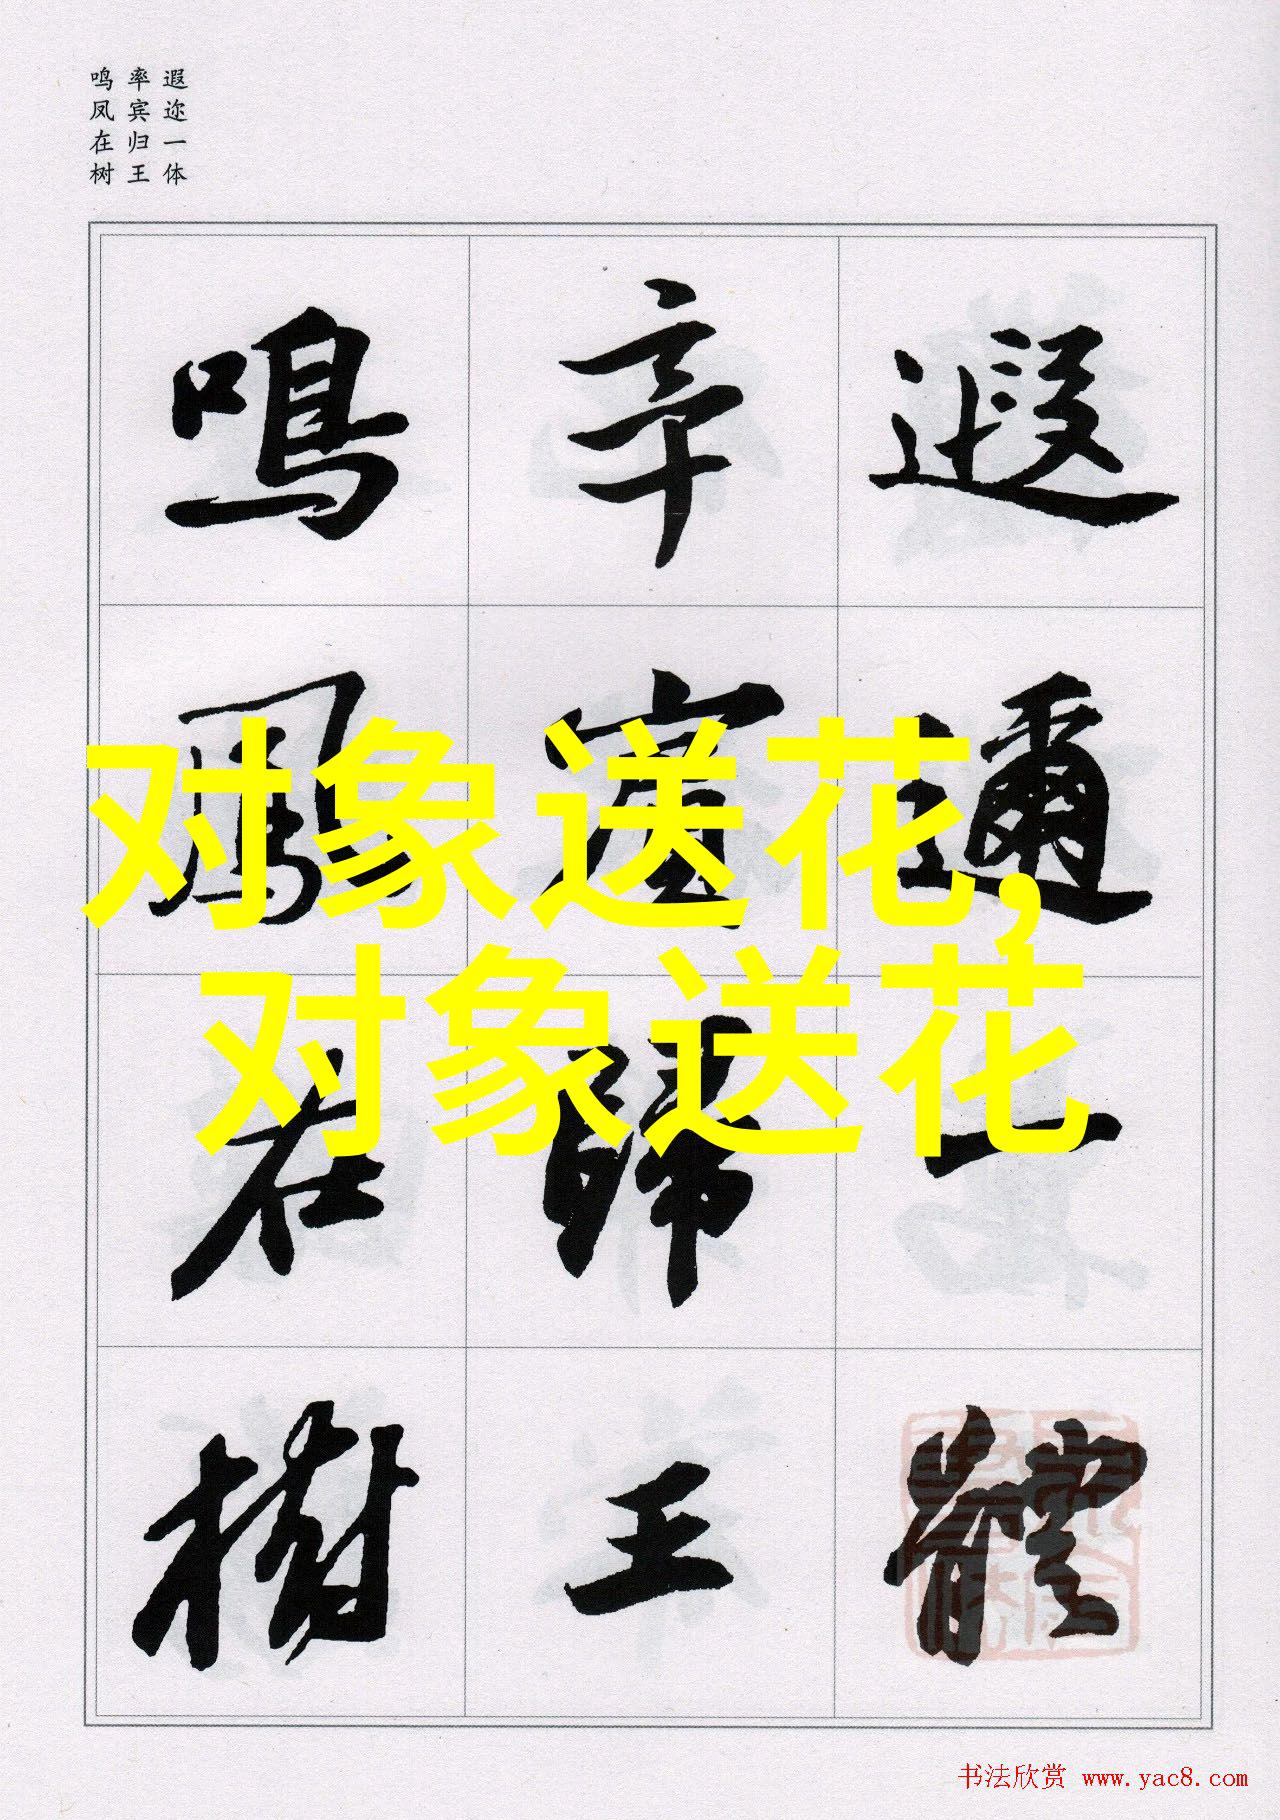 遐迩一体
率宾归王
鸣凤在树
遐邇一體
率賓歸王
鳴鳳在樹
对象送花,
对象送花
书法欣赏 www.yac8.com